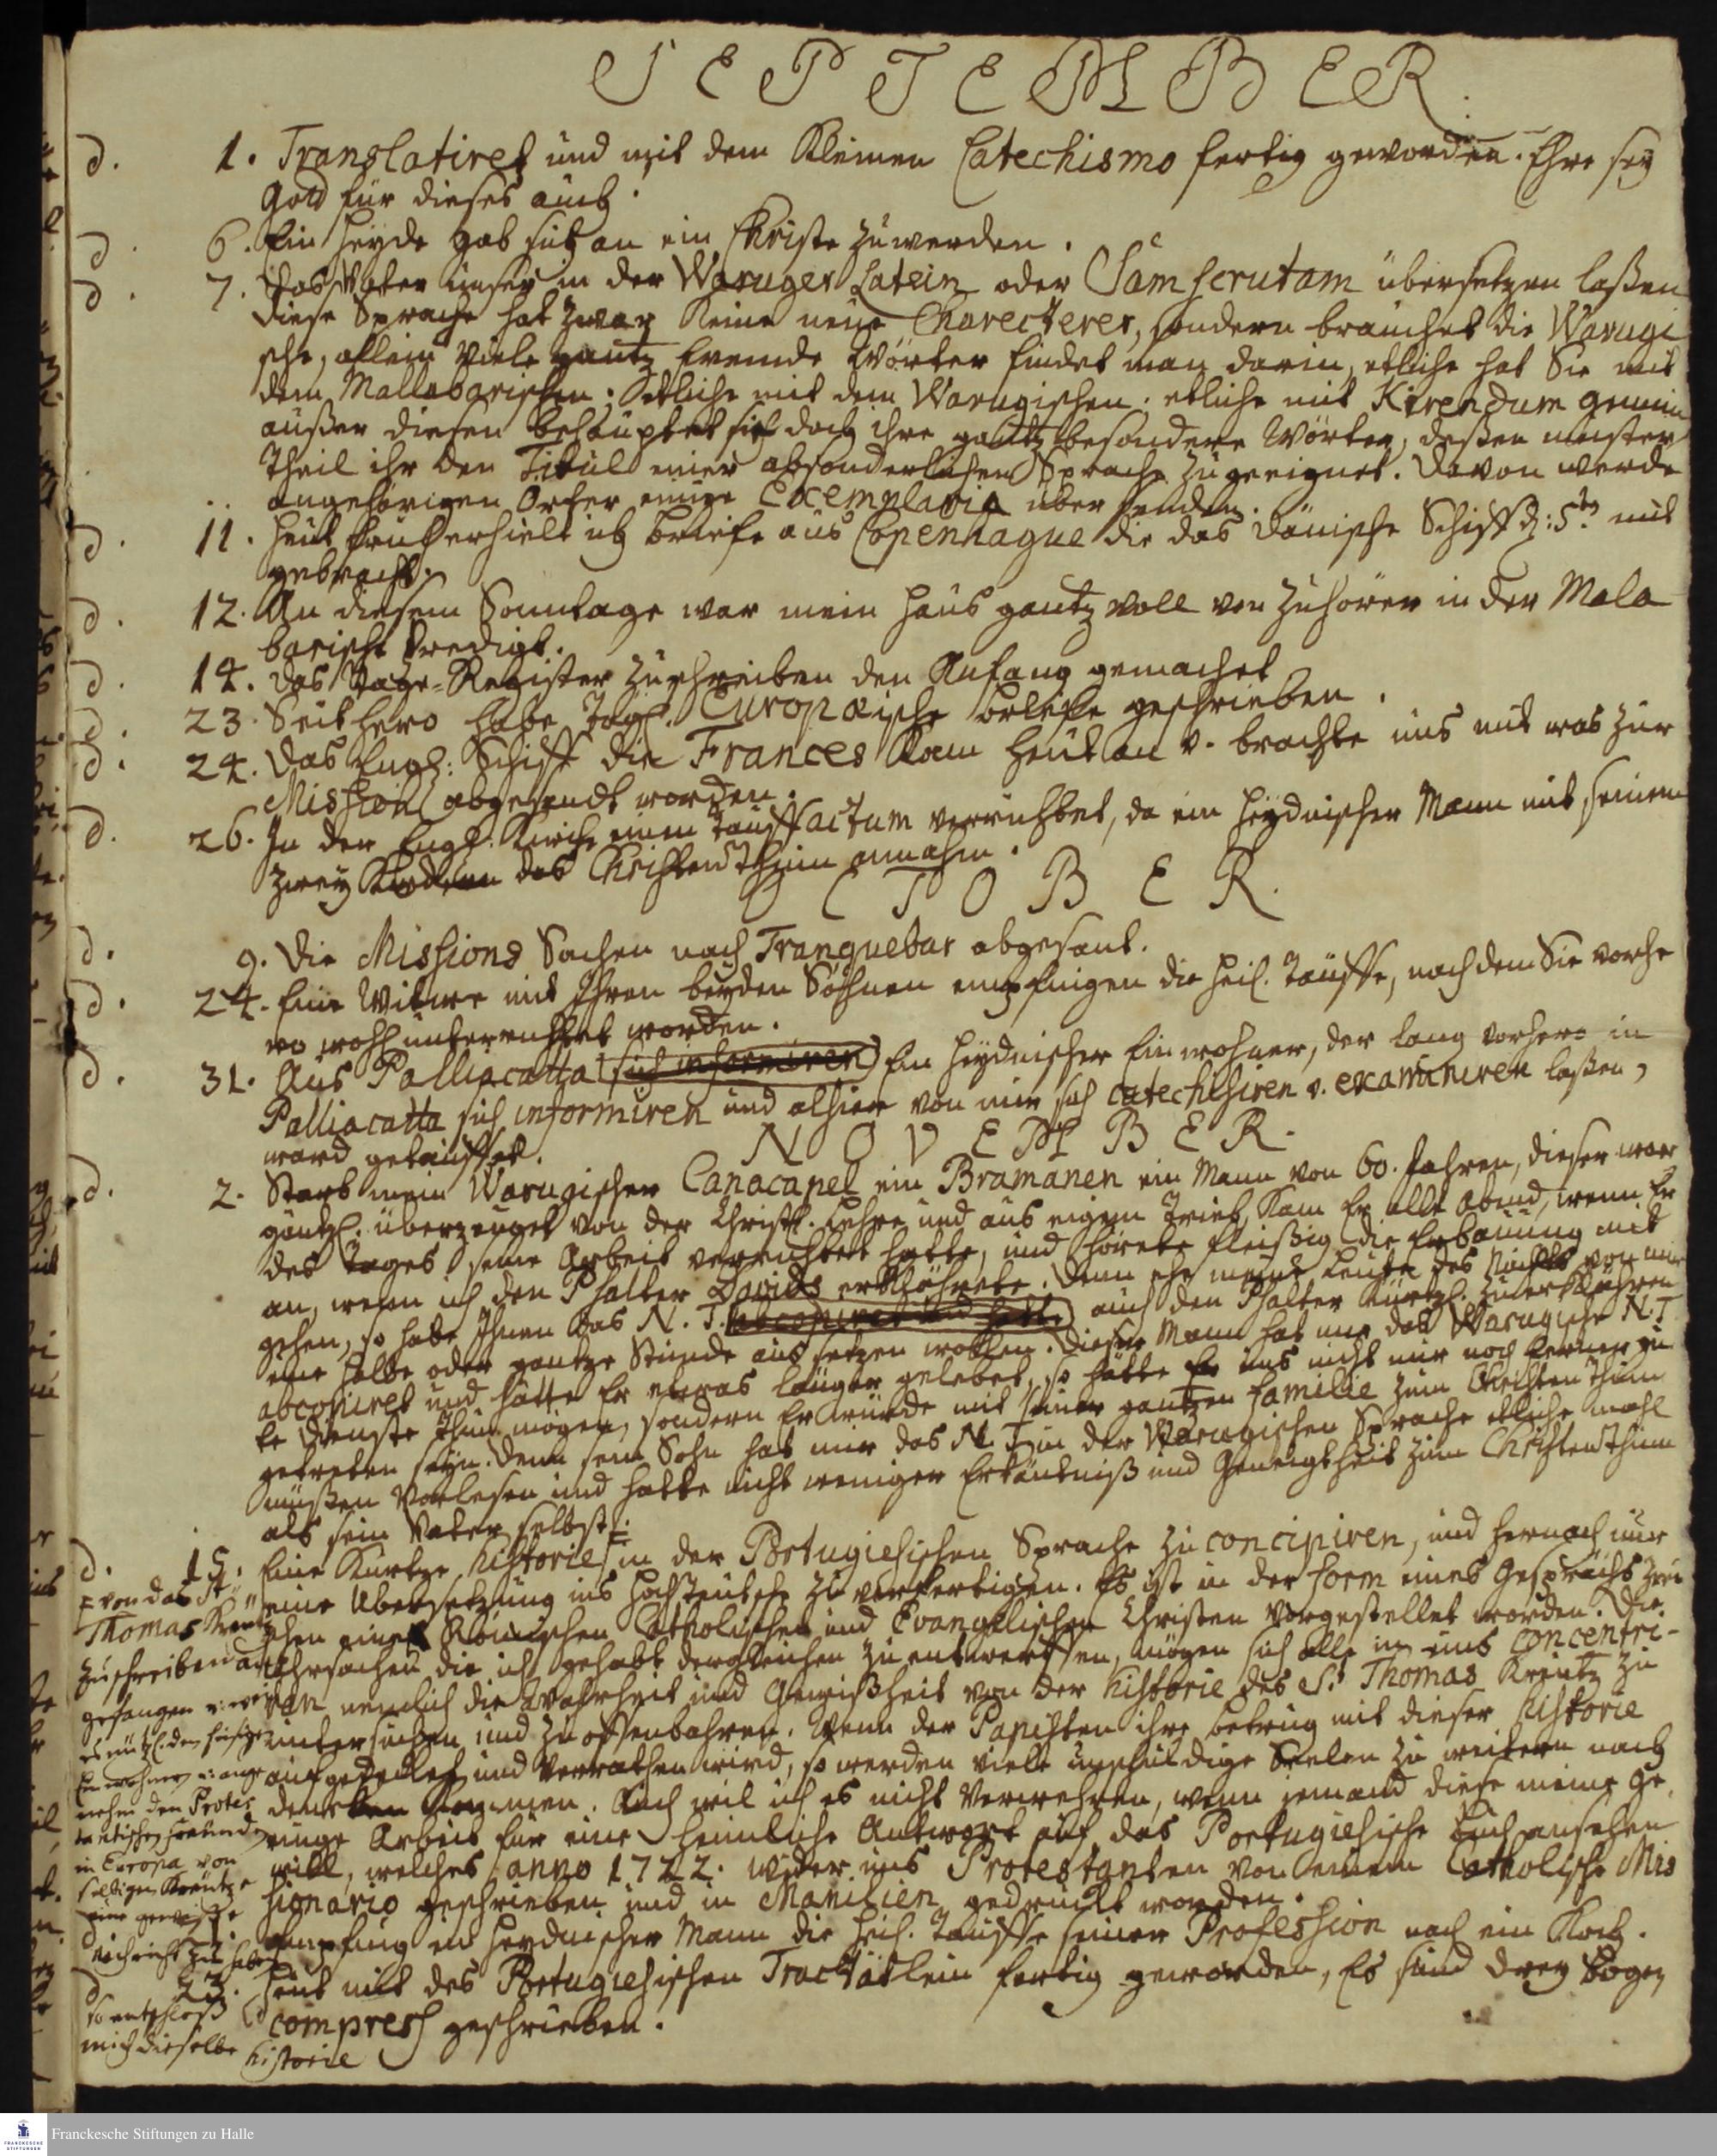 SEPTEMBER.
d. 1. Translatiret und mit dem Kleinen Catechismo fertig geworden. Ehre sey
Gott für dieses auch.
d. 6. Ein Heyde gab sich an ein Christe zu werden.
d. 7. Das Vater unser in der Waruger Latein oder Samscrutam übersetzen laßen
diese Sprache hat zwar keine neue Charecteres, sondern brauchet die Warugi
sche, allein viele gantz fremde Wörter findet man darin, etliche hat Sie mit
dem Mallabarischen; Etliche mit dem Warugischen; etliche mit Kirendum gemein
außer diesen behauptet sie doch ihre gantz besondere Wörter, deßen meister
Theil ihr den Titul einer absonderlichen Sprache zugeeignet. Davon werde
angehörigen Orter einige Exemplaria übersenden.
d. 11. Heut früh erhielt ich briefe aus Copenhague die das Dänische Schiff d: 5t mit
gebracht.
d. 12. An diesem Sonntage war mein Haus gantz voll von Zuhörer in der Mala
barische Predigt.
d. 14. Das Tage-Register zu schreiben den Anfang gemachet
d. 23. Seithero habe Tägl. Europæische briefe geschrieben.
d. 24. Das Engl: Schiff die Frances kam heut an v. brachte uns mit was zur
Mission abgesandt worden.
d. 26. In der Engl. Kirche einen Tauff actum verrichtet, da ein Heydnischer Mann mit seinen
zwey Kindern das Christenthum annahm.
OCTOBER.
d. 9. Die Missions Sachen nach Tranquebar abgesant.
d. 24. Eine Witwe mit Ihren beyden Söhnen empfingen die Heil. Tauffe, nachdem Sie vorhe
ro wohl unterrichtet worden.
d. 31. Aus Palliacatta sich informiren Ein Heydnischer Einwohner, der lang vorhero in
Palliacatta sich informiren und alhier von mir sich catechisiren v. examiniren laßen,
ward getauffet.
NOVEMBER.
d. 2. Starb mein Warugischer Canacapel ein Bramanen ein Mann von 60. Jahren, dieser war
gäntzl. überzeuget von der Christl. Lehre und aus eigem Trieb kam Er alle abend, wenn Er
des Tages seine Arbeit verrichtet hatte, und hörete fleißig die Erbauung mit
an, wenn ich den Psalter Davids erklährete. Denn ehe meine Leute des Nachts von mir
gehen, so habe Ihnen das N. T. auch den Psalter kürtzl. zu erklähren
eine halbe oder gantze Stunde aus setzen wollen. Dieser Mann hat mir das Warugische N. T
abcopiret und hätte Er etwas länger gelebet, so hätte Er uns nicht nur noch ferner gu
te Dienste thun mögen, sondern Er würde mit seiner gantzen Familie zum Christenthum
getreten seyn. Denn sein Sohn hat mir das N. T. in der Warugischen Sprache etliche mahl
müßen vorlesen und hatte nicht weniger Erkäntniß und Geneigtheit zum Christenthum
als sein Vater selbst.
d. 15. Eine kurtze historie in der Portugiesischen Sprache zu concipiren, und hernach nur
eine Ubersetzung ins Hochteutsche zu verfertigen. Es ist in der Form eines Gesprächs zwi
schen eines Römischen Catholischen und Evangelischen Christen vorgestellet worden. Die
Uhrsachen die ich gehabt dergleichen zu entwerffen, mögen sich alle in uns concentri-
ren nemlich die Wahrheit und Gewißheit von der historie des St. Thomas Kreutz zu
untersuchen und zu offenbahren. Wenn der Papisten ihr betrug mit dieser historie
aufgedecket und verrathen wird, so werden viele unschuldige Seelen zu weitern nach
dencken kommen. Auch wil ich es nicht verwehren, wenn jemand diese meine ge
ringe Arbeit für eine heimliche Antwort auf das Portugiesische Buch ansehen
will, welches anno 1722. wider uns Protestanten von einem Catholische Mis
sionario geschrieben und in Manilien gedruckt worden.
empfing ein Heydnischer Mann die Heil. Tauffe seiner Profession nach ein Koch.
23. Heut mit des Portugiesischen Tractätlein fertig geworden, Es sind drey Bogen
compress geschrieben.
von das St
Thomas Kreutz
zu schreiben an
gefangen v: weil
es nützl. den hiesigen
Einwohner v: ange
nehm den Protes
tantischen freunde
in Europa von
selbigen Kreutze
eine gewiße
nachricht zu haben
so entschloß
mich dieselbe
historie
Franckesche Stiftungen zu Halle